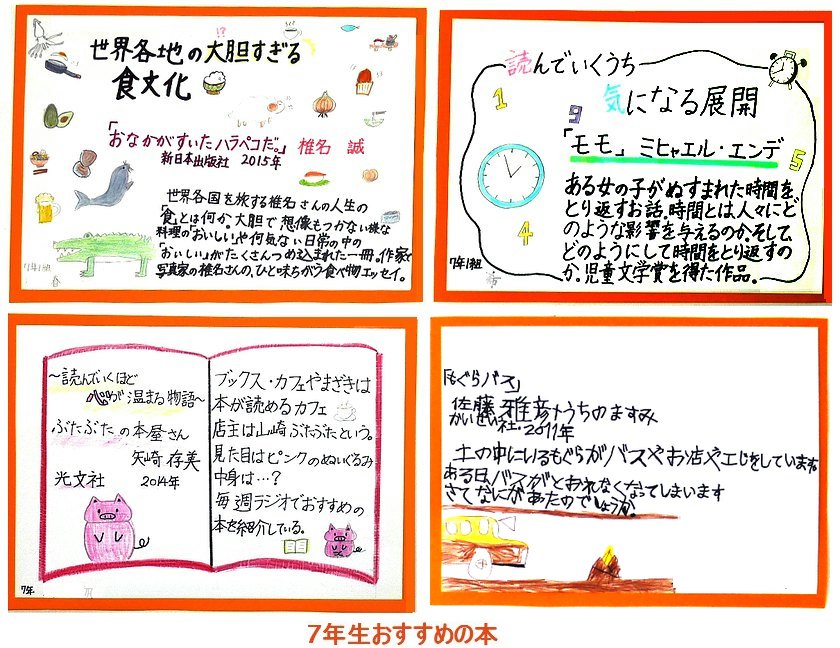 世界各地の大胆すぎる
食文化
「おなかがすいたハラペコだ。」椎名 誠
新日本出版社 2015年
世界各国を旅する椎名さんの人生の
「食」とは何か。大胆で想像もつかない様な
料理の「おいしい」や何気ない日常の中の
「おいしい」がたくさんつめ込まれた一冊。作家で
写真家の椎名さんの、ひと味ちがう食べ物エッセイ。
7年1組
読んでいくうち
気になる展開
「モモ」ミヒャエル・エンデ
ある女の子がぬすまれた時間を
とり返すお話。時間とは人々にど
のような影響を与えるのかそして、
どのようにして時間をとり返すの
か。児童文学賞を得た作品。
7年1組
1
9
5
4
〜読んでいくほど
心が温まる物語〜
ぶたぶたの本屋さん
矢崎 存美
光文社 2014年
ブックス・カフェやまざきは
本が読めるカフェ
店主は山崎ぶたぶたという。
見た目はピンクのぬいぐるみ
中身は…?
毎週ラジオでおすすめの
本を紹介している。
7年
「もぐらバス」
佐藤雅彦+うちのますみ
かいせい社・2011年
土の中にいるもぐらがバスやお店や工じをしていますね
ある日、バスがとおれなくなってしまいます
さてなにがあったのでしょうか。
7年生おすすめの本